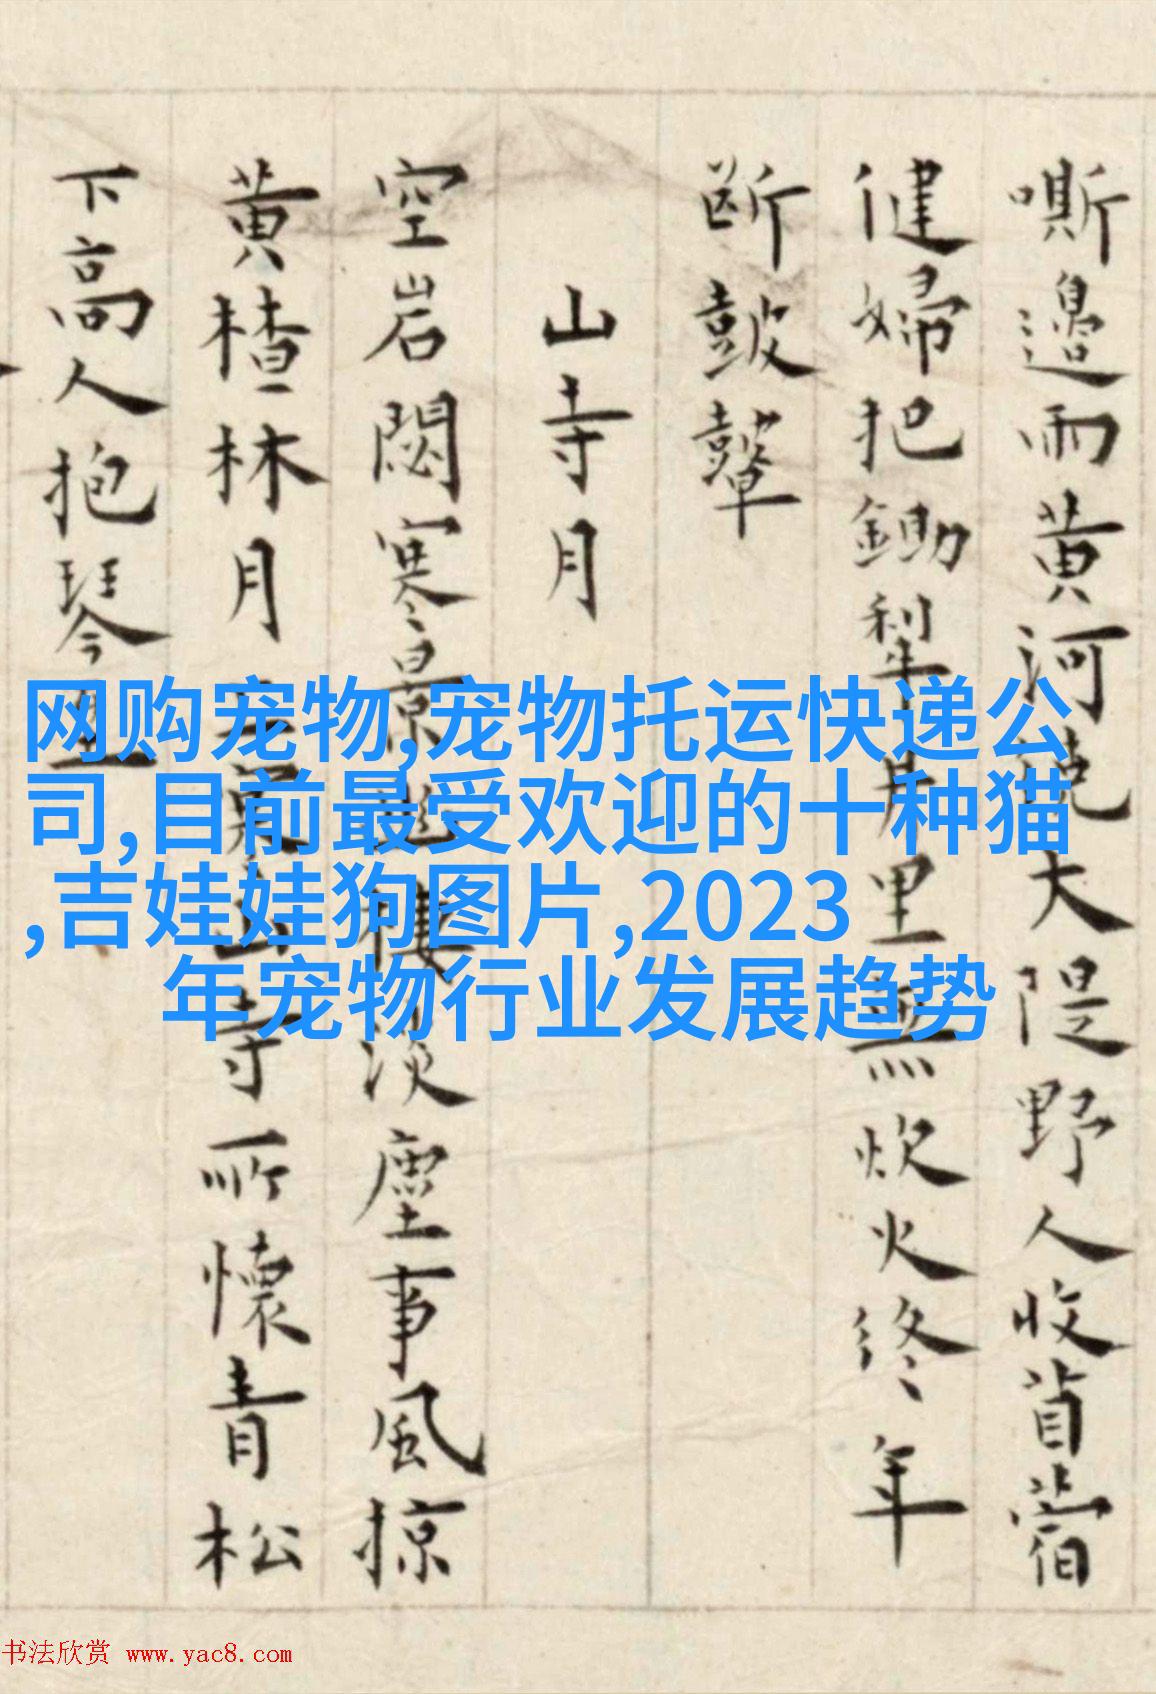 嘶邊雨黄河大隄野人收苜蓿
健婦把鋤犂里無炊火終年
斷鼓鼙
山寺月
空岩閟寒景樓淡塵事風掠
黄楂林月山寺所懷青松
下高人抱琴
网购宠物,宠物托运快递公
司,目前最受欢迎的十种猫
,吉娃娃狗图片,2023
年宠物行业发展趋势
书法欣赏 www.yac8.com